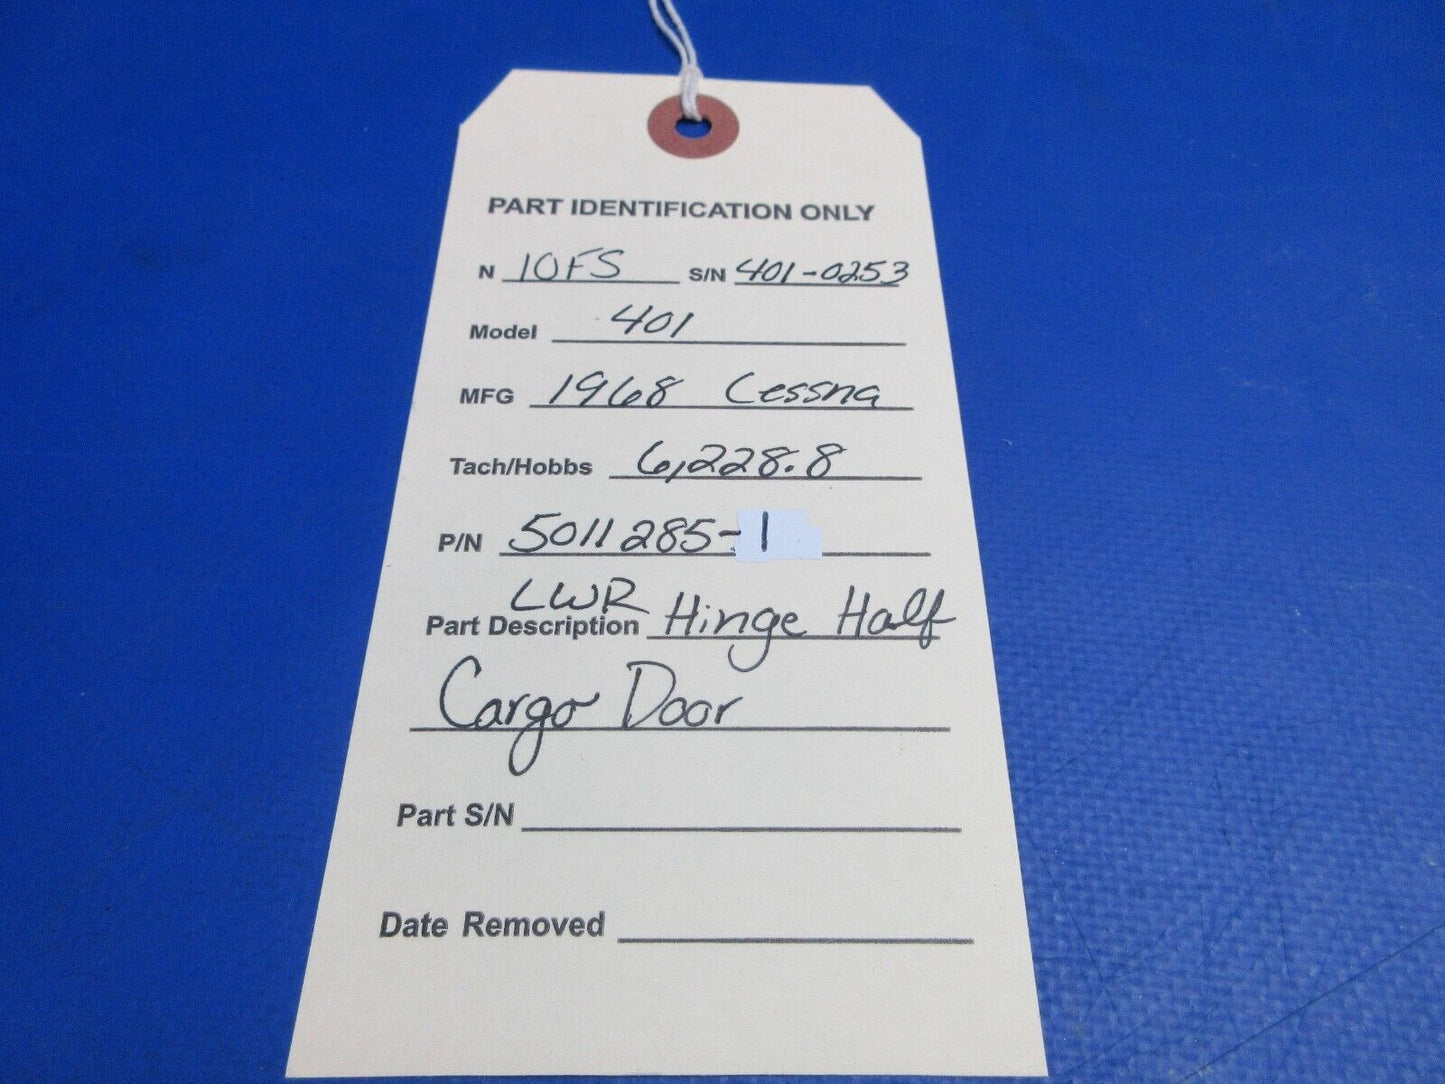 PART IDENTIFICATION ONLY
N 10FS S/N 401-0253
Model 401
MFG 1968 Cessna
Tach/Hobbs 6,228.8
P/N 5011285-1
LWR
Part Description Hinge Half
Cargo Door
Part S/N
Date Removed